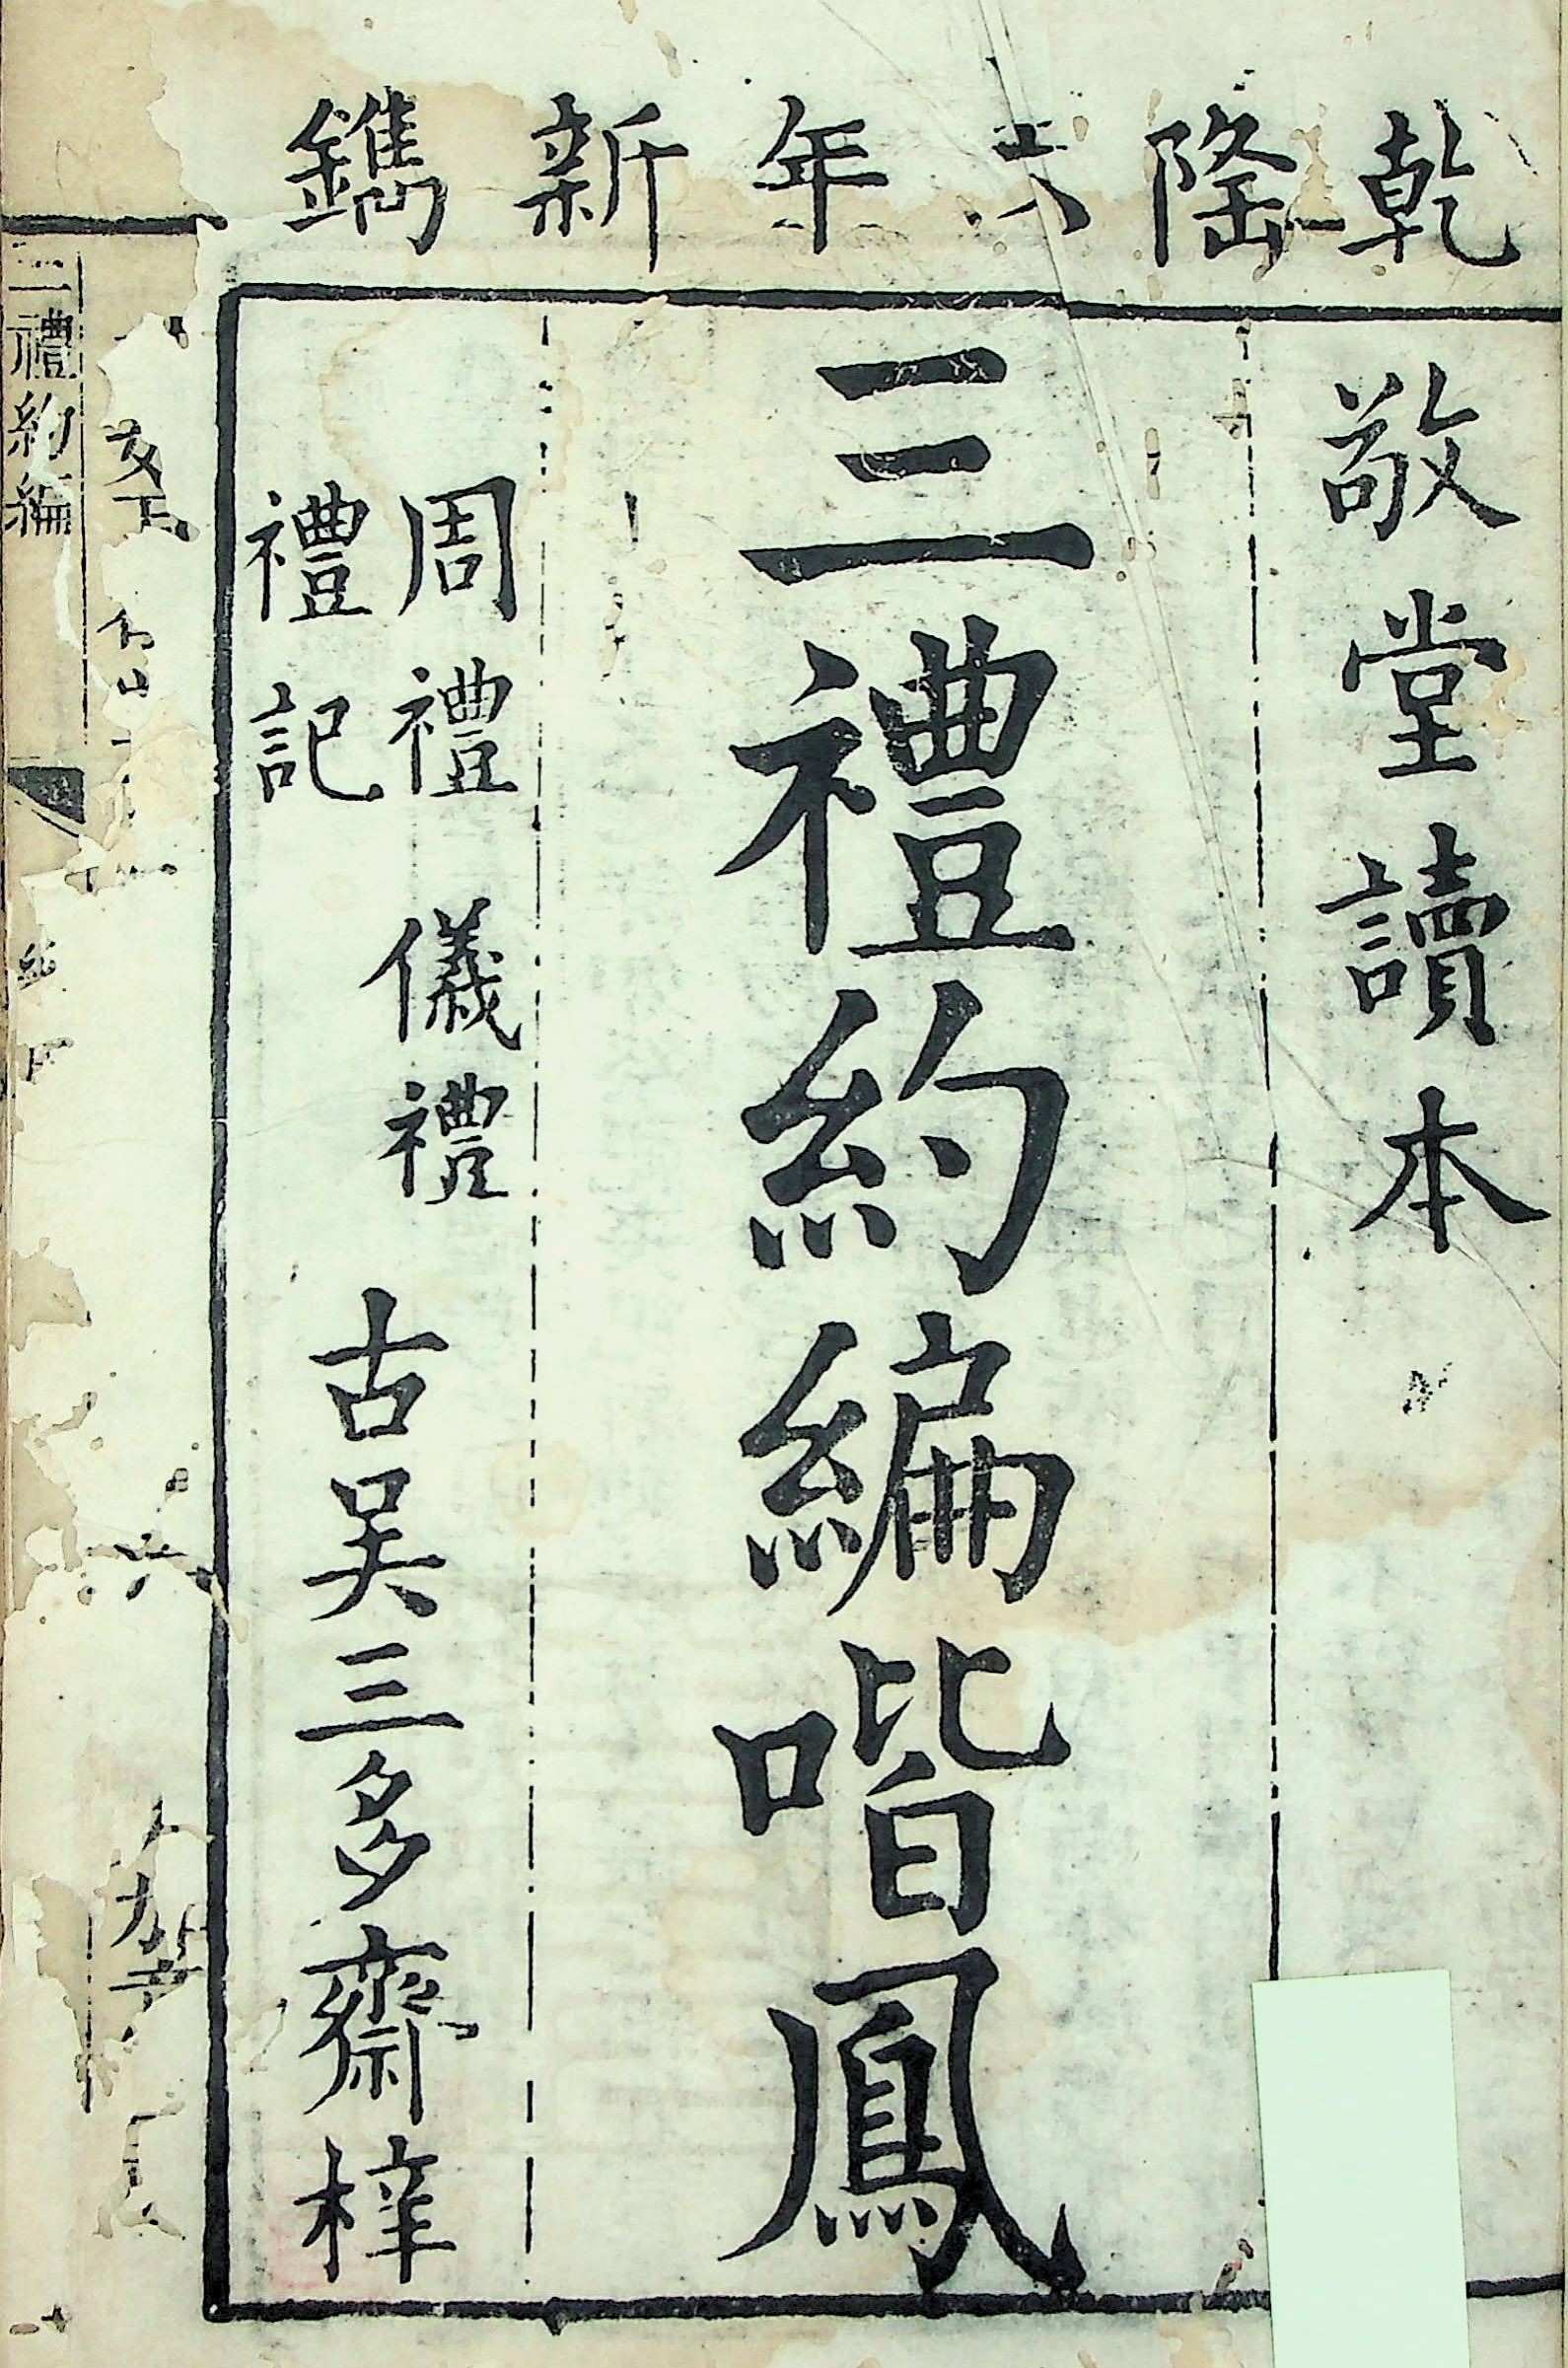 乾隆六年新鐫
敬堂讀本
三禮約編喈鳳
周禮 儀禮
禮記
古吴三多齋梓
三禮約編